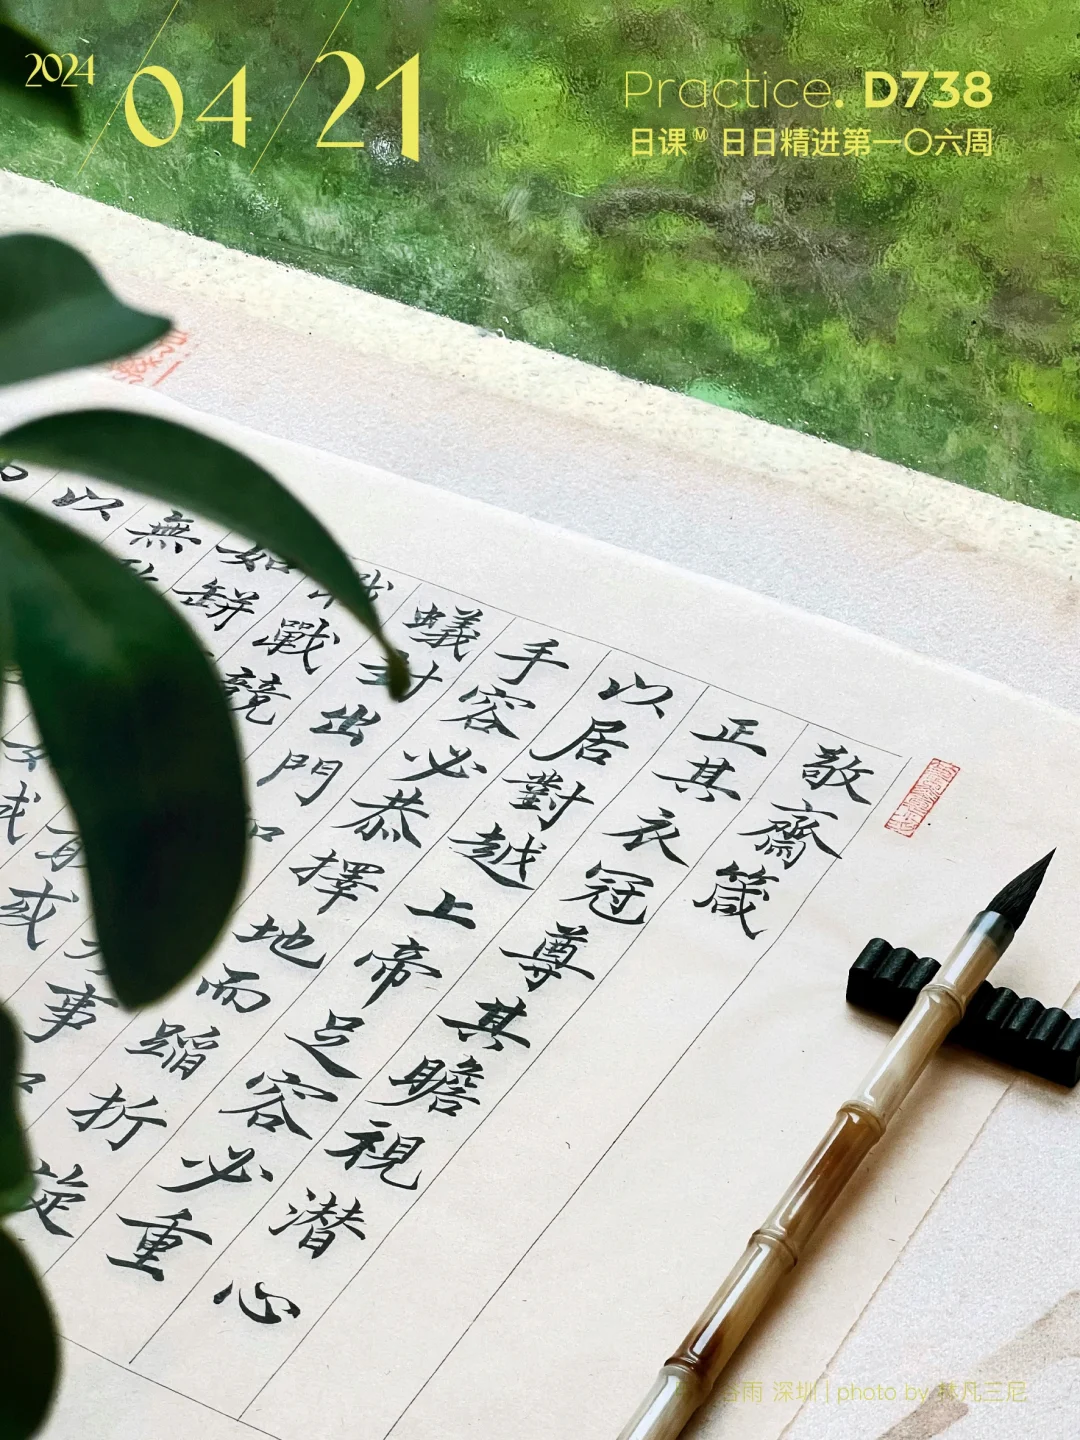 2024 04 21
Practice. D738
日课 M 日日精进第一〇六周
敬齋箴
正其衣冠尊其瞻視潜心
以居對越上帝足容必重
手容必恭擇地而蹈折旋
蟻封出門 事
戰兢 或
如缾
無
以
谷雨 深圳 | photo by